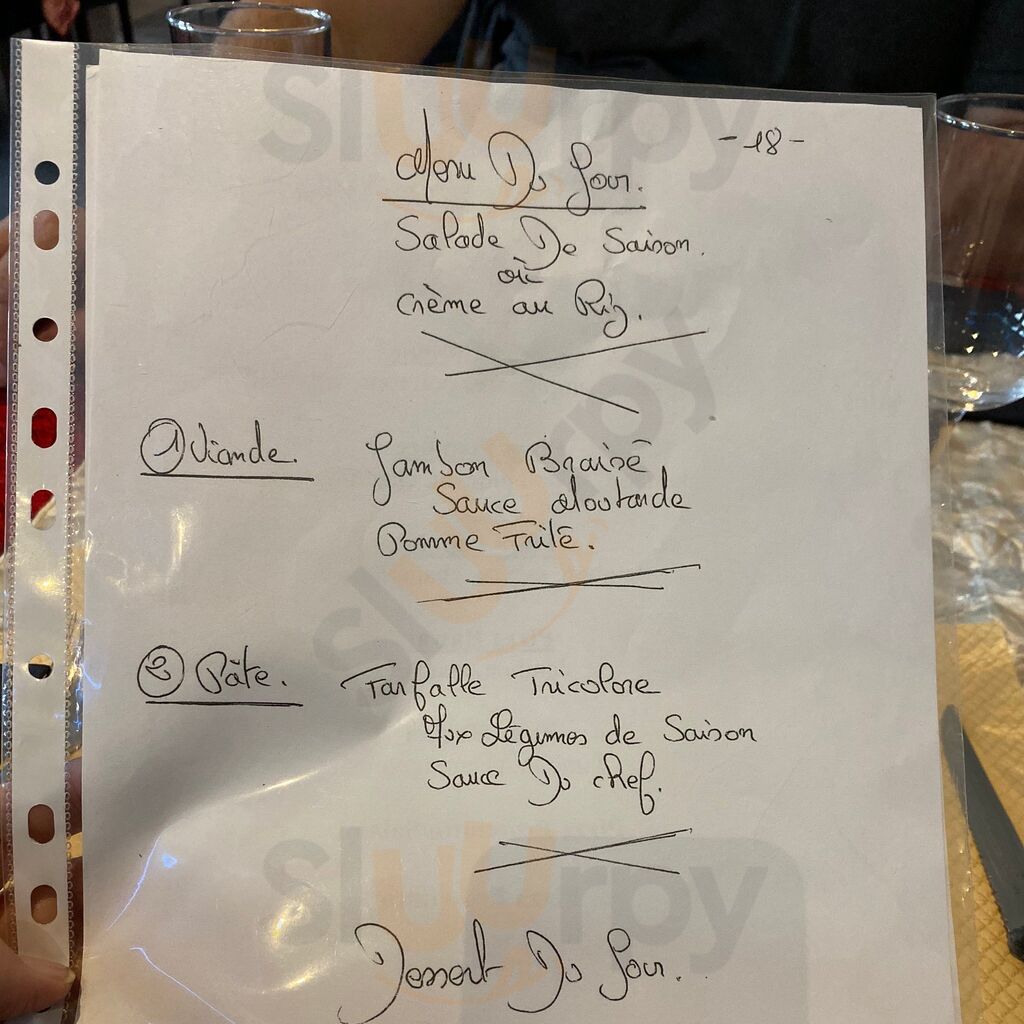 Menu Du Jour.
-18-
Salade De Saison.
où
Crème au Riz.
① Viande.
Jambon Braisé,
Sauce Moutarde
Pomme Frite.
② Pâte.
Farfalle Tricolore
Aux Légumes de Saison
Sauce Du chef.
Dessert Du Jour.
slurpy
slurpy
slurpy